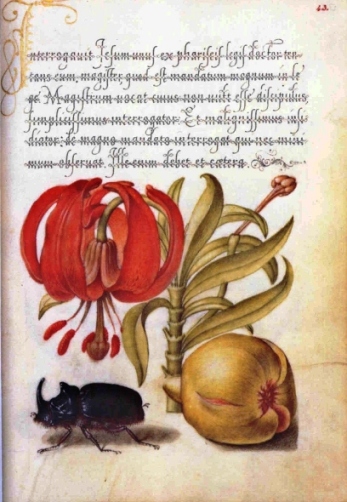 63.
Interrogauit Jesum unus ex phariseis legis doctor ten-
tans eum, magister quod est mandatum magnum in le
ge. Magistrum uocat cuius non uult esse discipulus,
simplicissimus interrogator. Et malignissimus insi-
diator: de magno mandato interrogat qui nec mini
mum obseruat. Ille enim debet et cætera.